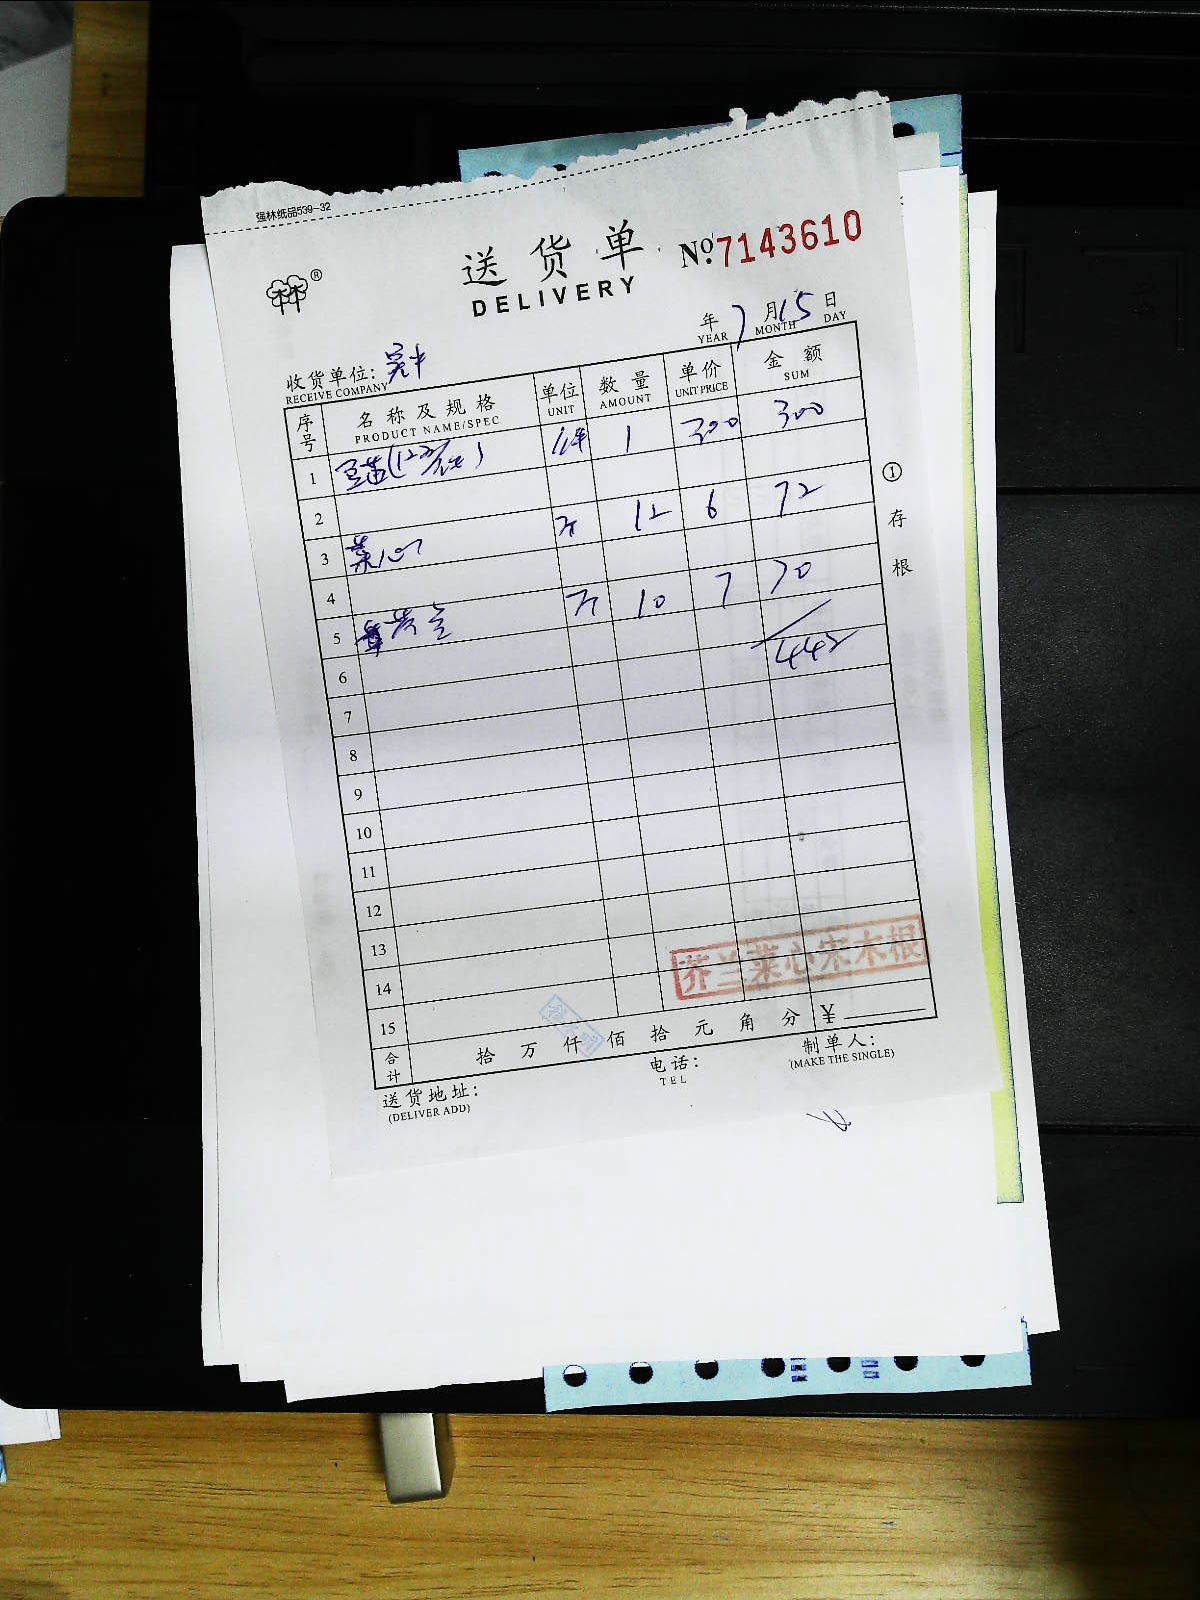 强林纸品539-32
送货单
№7143610
DELIVERY
®
年 7 月 15 日
YEAR MONTH DAY
收货单位:
RECEIVE COMPANY
序号 名称及规格 单位 数量 单价 金额
PRODUCT NAME/SPEC UNIT AMOUNT UNIT PRICE SUM
1 豆苗 件 1 300 300
2
3 菜心 斤 12 6 72
4
5 芥兰 斤 10 7 70
6 442
7
8
9
10
11
12
13
14
15
芥兰菜心宋木根
合计 拾 万 仟 佰 拾 元 角 分 ¥
送货地址: 电话: 制单人:
(DELIVER ADD) TEL (MAKE THE SINGLE)
①存根